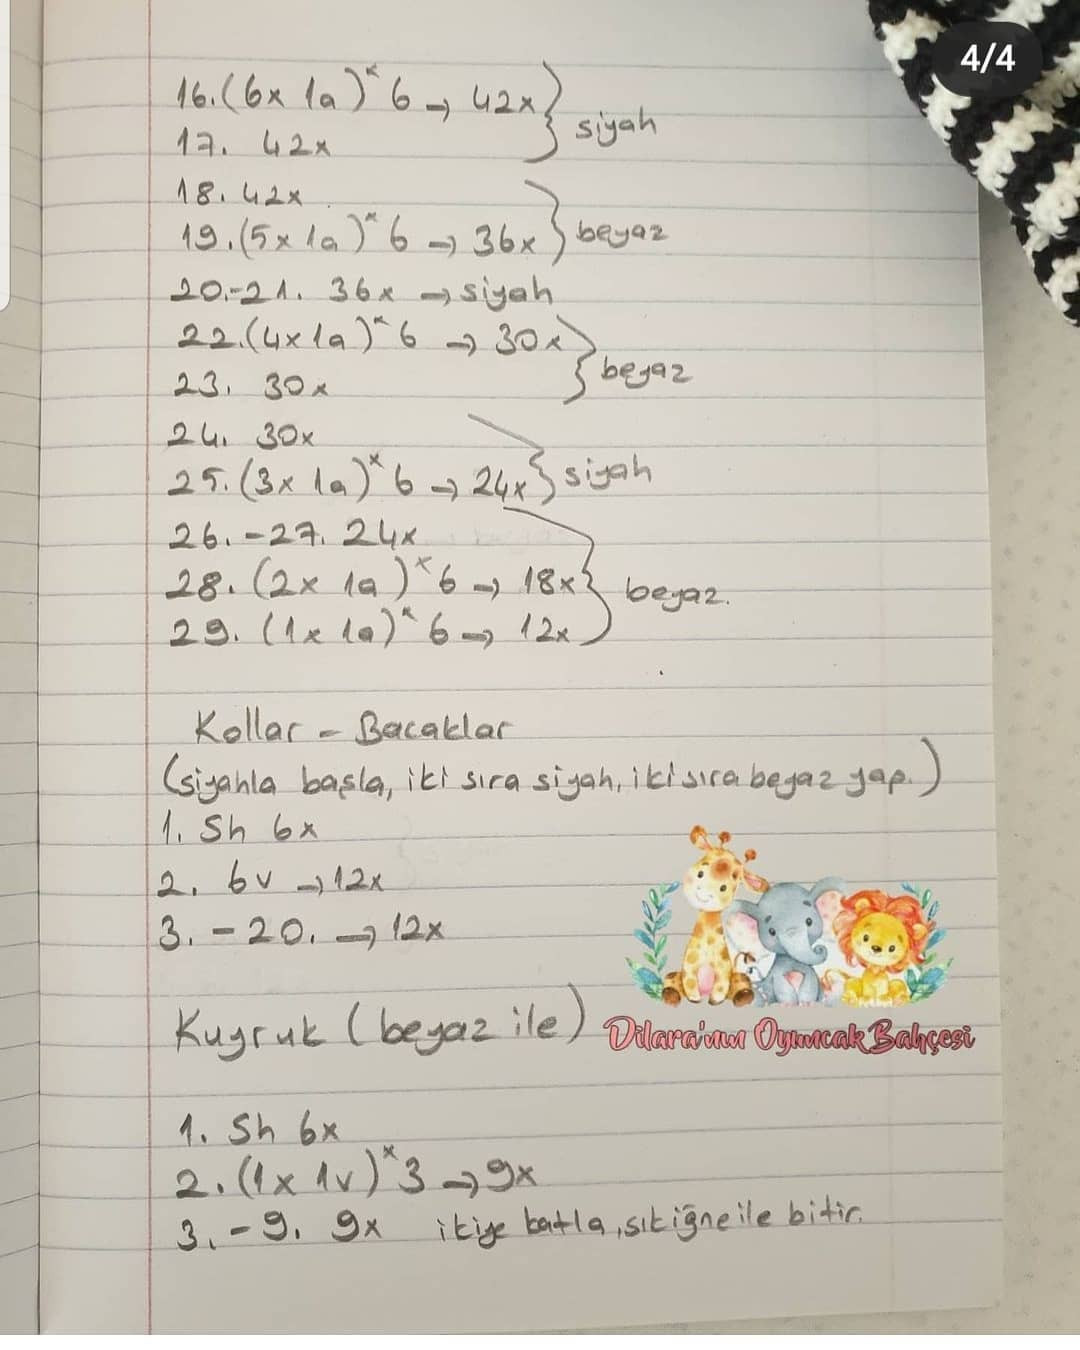 4/4
16.(6x 1a)*6→42x} siyah
17. 42x
18. 42x
19.(5x 1a)*6→36x} beyaz
20.-21. 36x→siyah
22.(4x1a)*6→30x} beyaz
23. 30x
24. 30x
25.(3x 1a)*6→24x} siyah
26.-27. 24x
28. (2x 1a)*6→18x} beyaz.
29. (1x 1a)*6→12x
Kollar - Bacaklar
(siyahla başla, iki sıra siyah, iki sıra beyaz yap.)
1. Sh 6x
2. 6v→12x
3.-20.→12x
Kuyruk (beyaz ile)
Dilara'nın Oyuncak Bahçesi
1. Sh 6x
2.(1x 1v)*3→9x
3.-9. 9x ikiye katla, sık iğne ile bitir.